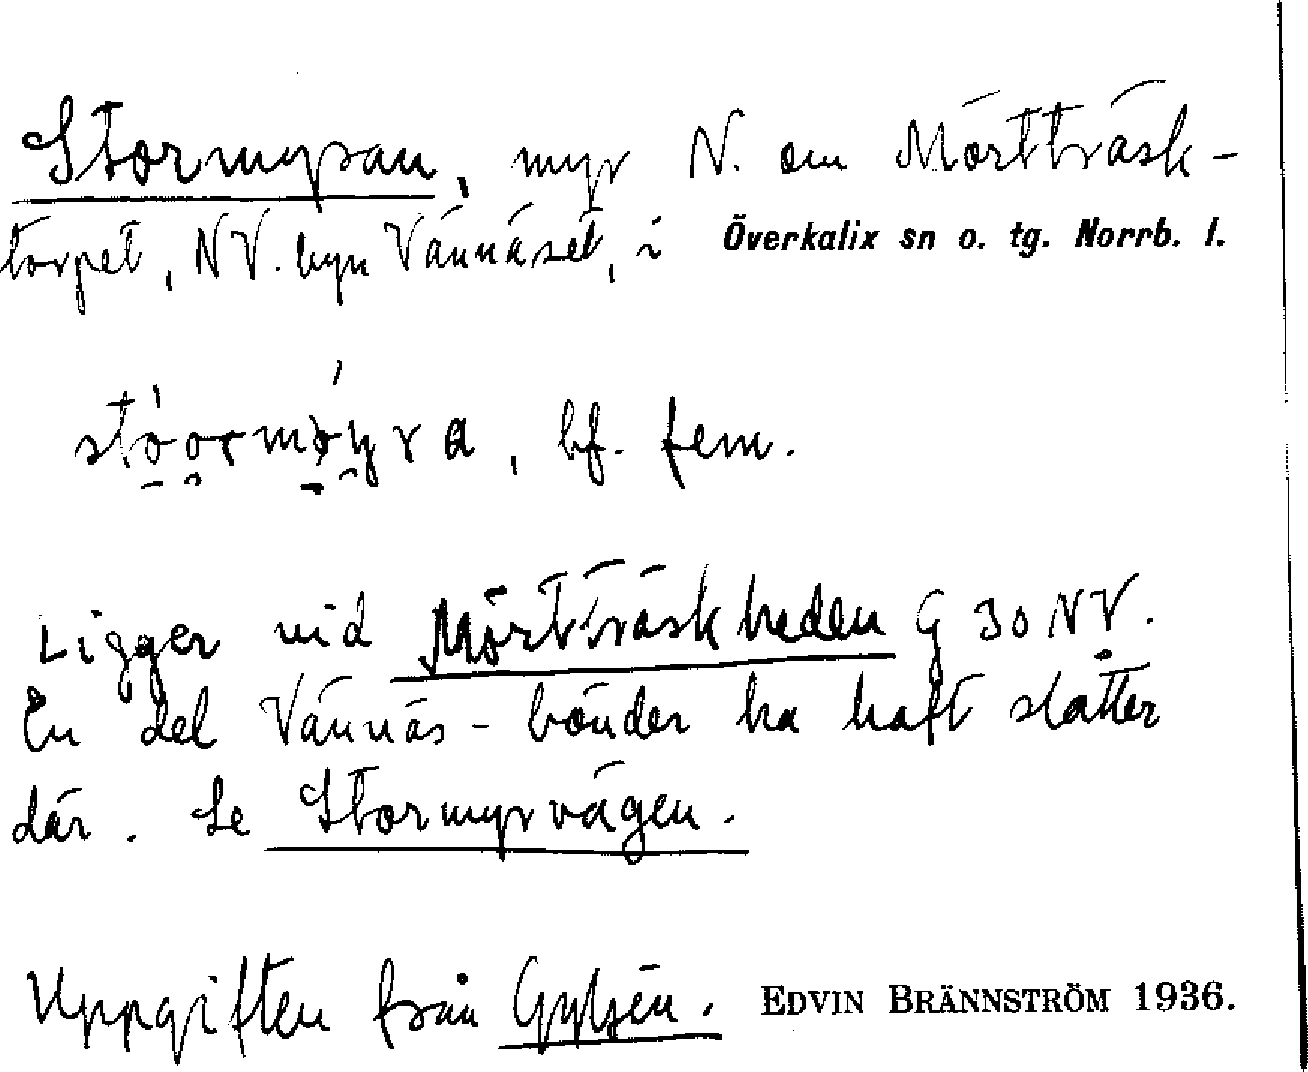 Stormyran, myr N. om Mörtträsk-
torpet, NV. byn Vännäset, i Överkalix sn o. tg. Norrb. l.
bf. fem.
Ligger vid Mörtträskheden G 30 NV.
En del Vännäs-bönder ha haft slåtter
där. Se Stormyrvägen.
Uppgiften från EDVIN BRÄNNSTRÖM 1936.